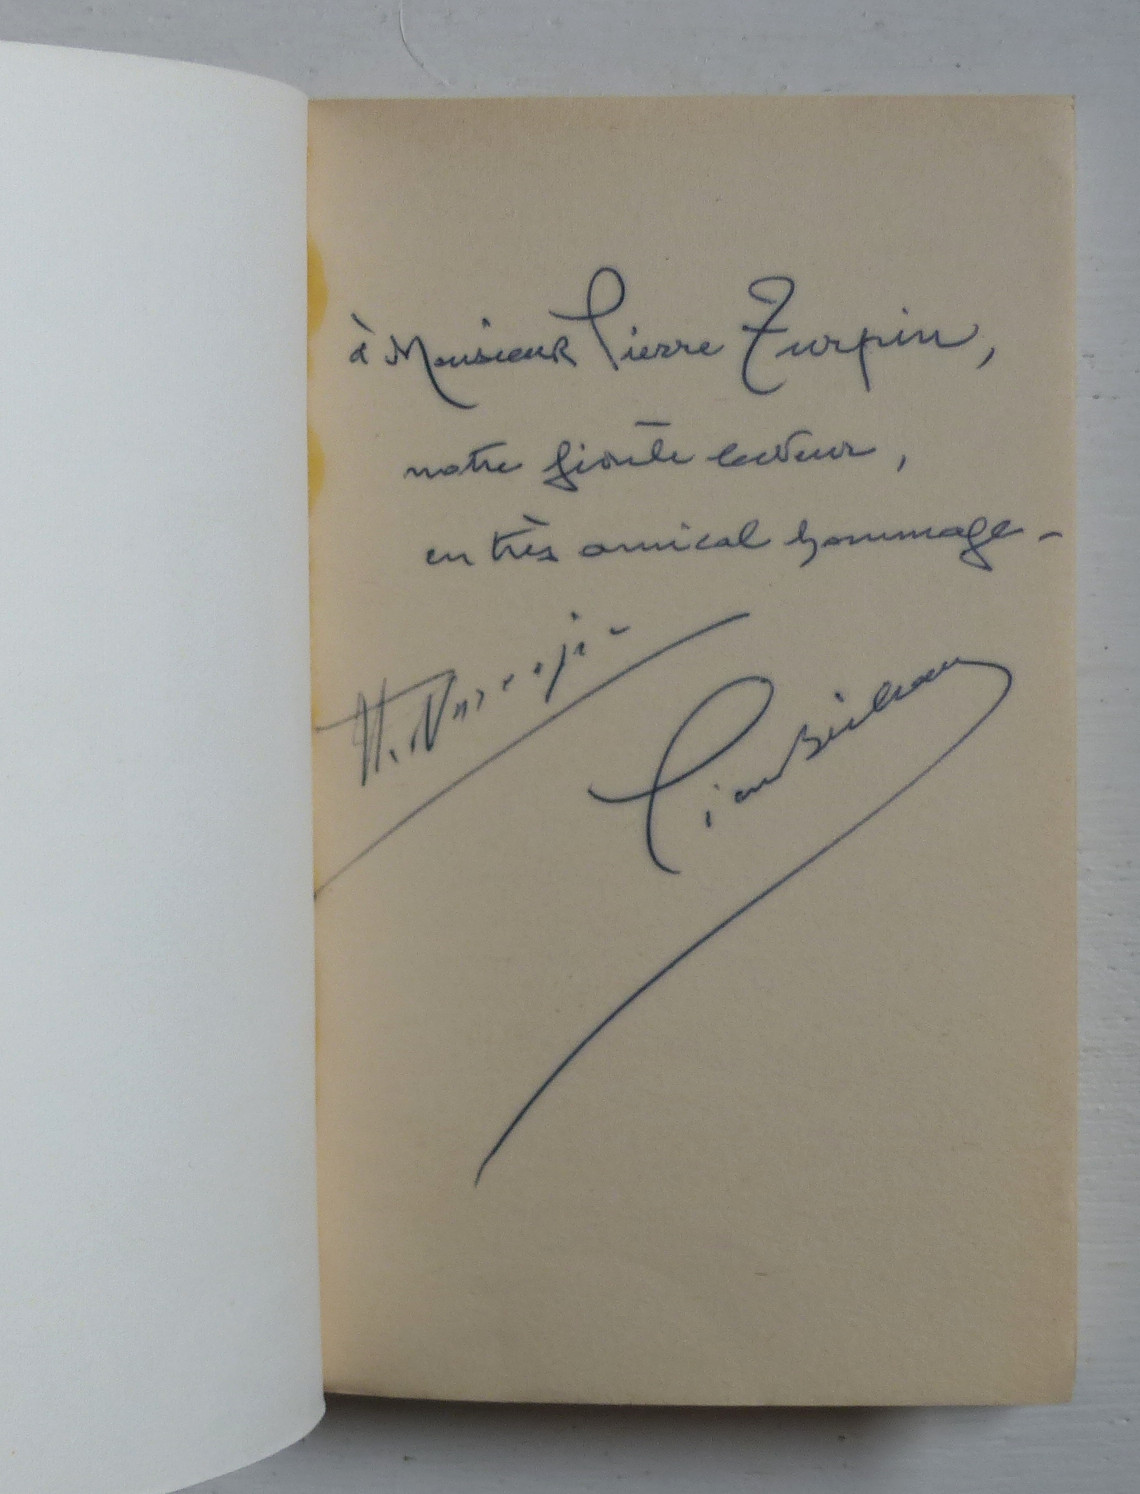 à Monsieur Pierre Turpin,
notre fidèle lecteur,
en très amical hommage -
Th. Narcejac
Pierre Boileau